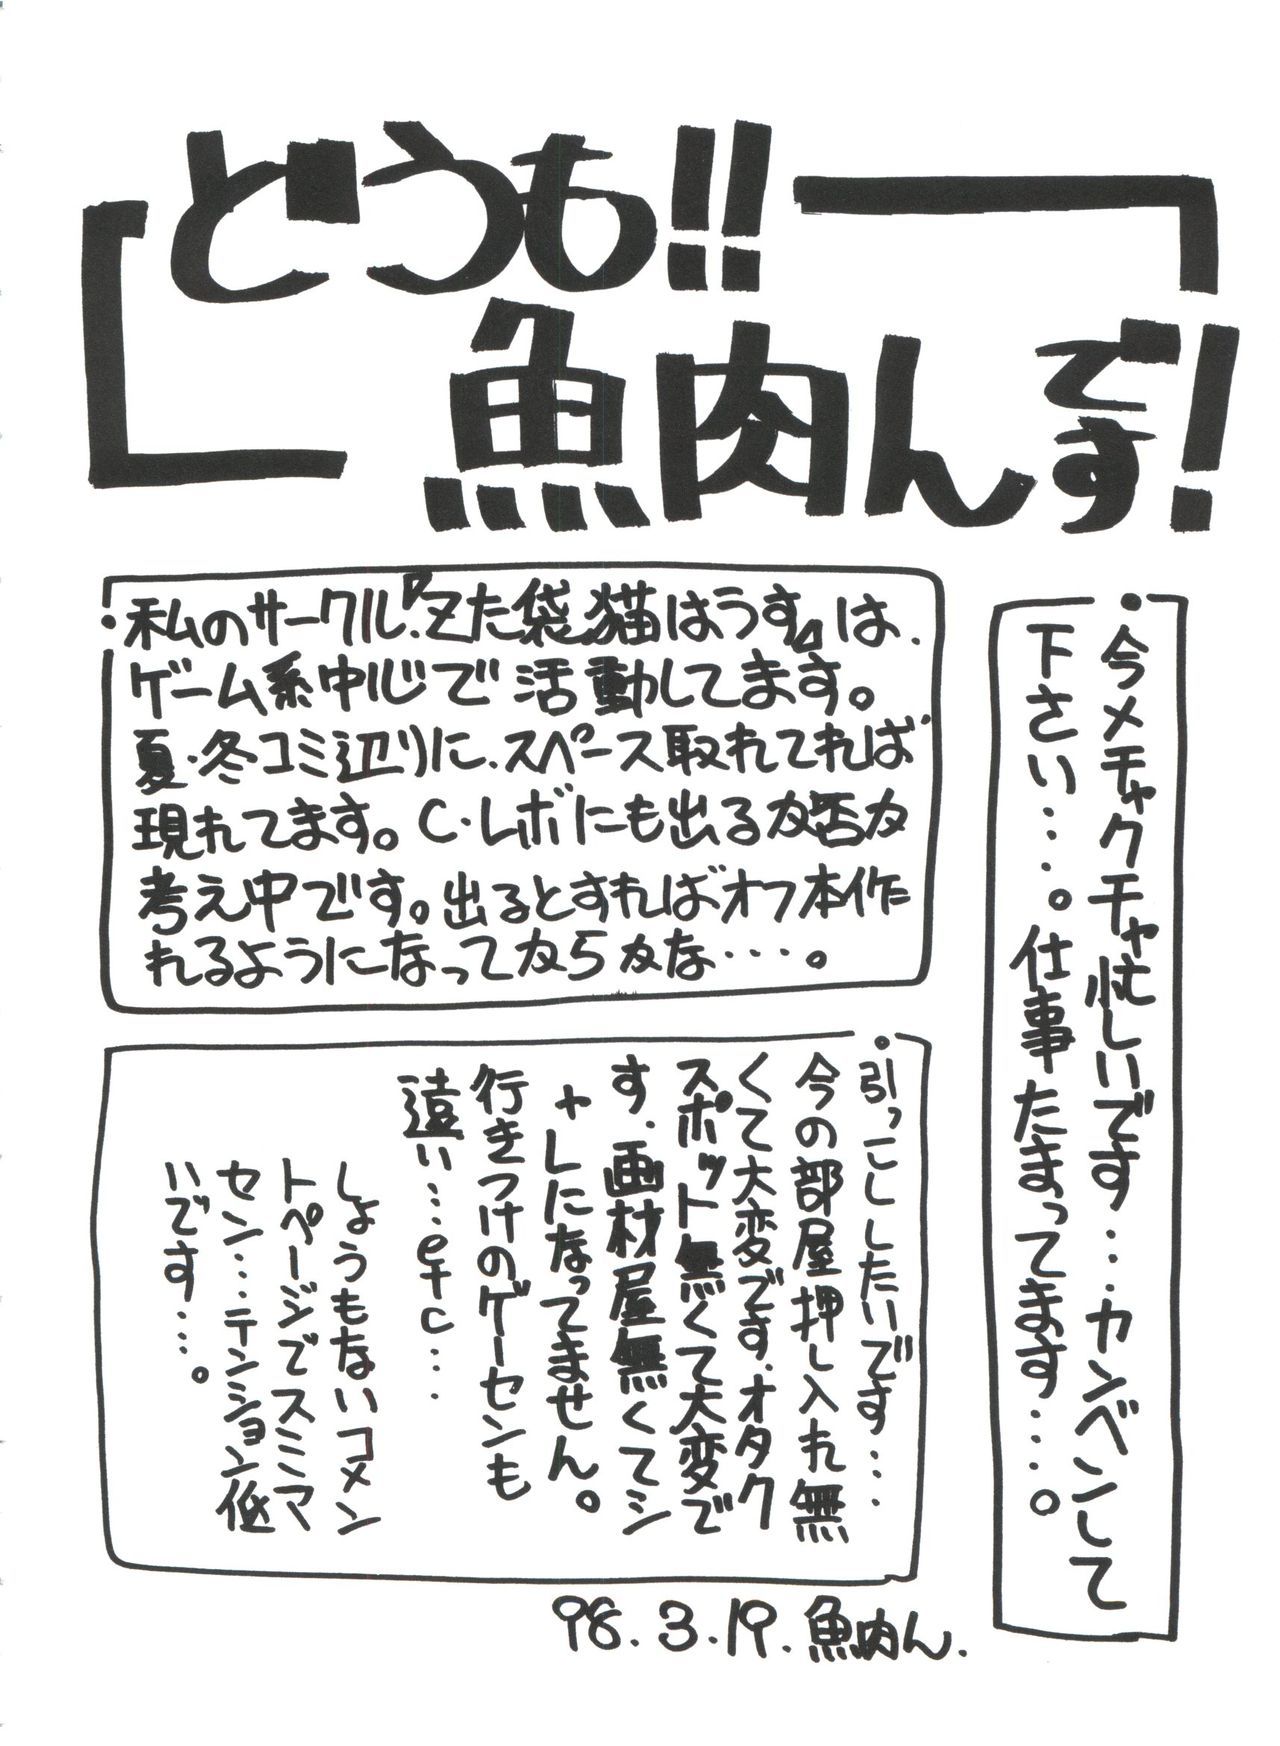 どうも!!
魚肉んです!
・今メチャクチャ忙しいです…カンベンして
下さい…。仕事たまってます…。
・私のサークル『Zた袋猫はうす』は、
ゲーム系中心で活動してます。
夏・冬コミ辺りに、スペース取れてれば
現れてます。C・レボにも出るか否か
考え中です。出るとすればオフ本作
れるようになってからかな…。
・引っこししたいです…
今の部屋押し入れ無
くて大変です。オタク
スポット無くて大変で
す。画材屋無くてシ
ャレになってません。
行きつけのゲーセンも
遠い…etc…
しょうもないコメン
トページでスミマ
セン…テンション低
いです…。
98.3.19.魚肉ん.